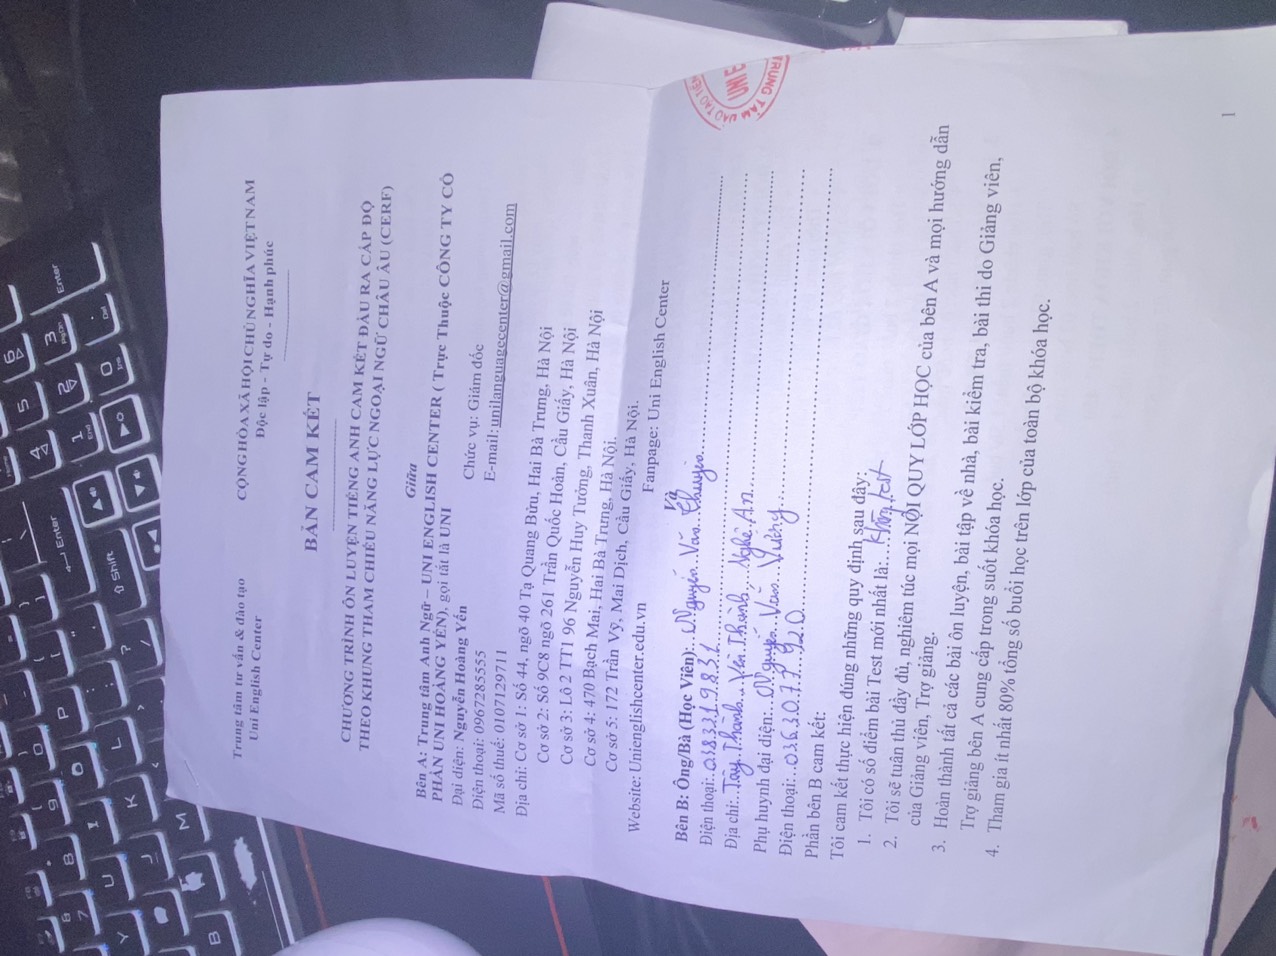 Trung tâm tư vấn & đào tạo
Uni English Center
CỘNG HÒA XÃ HỘI CHỦ NGHĨA VIỆT NAM
Độc lập - Tự do - Hạnh phúc
BẢN CAM KẾT
CHƯƠNG TRÌNH ÔN LUYỆN TIẾNG ANH CAM KẾT ĐẦU RA CẤP ĐỘ
THEO KHUNG THAM CHIẾU NĂNG LỰC NGOẠI NGỮ CHÂU ÂU (CERF)
Giữa
Bên A: Trung tâm Anh Ngữ – UNI ENGLISH CENTER ( Trực Thuộc CÔNG TY CỔ
PHẦN UNI HOÀNG YẾN), gọi tắt là UNI
Đại diện: Nguyễn Hoàng Yến Chức vụ: Giám đốc
Điện thoại: 0967285555 E-mail: unilanguagecenter@gmail.com
Mã số thuế: 0107129711
Địa chỉ: Cơ sở 1: Số 44, ngõ 40 Tạ Quang Bửu, Hai Bà Trưng, Hà Nội
Cơ sở 2: Số 9C8 ngõ 261 Trần Quốc Hoàn, Cầu Giấy, Hà Nội
Cơ sở 3: Lô 2 TT1 96 Nguyễn Huy Tưởng, Thanh Xuân, Hà Nội
Cơ sở 4: 470 Bạch Mai, Hai Bà Trưng, Hà Nội.
Cơ sở 5: 172 Trần Vỹ, Mai Dịch, Cầu Giấy, Hà Nội.
Website: Unienglishcenter.edu.vn Fanpage: Uni English Center
Và
Bên B: Ông/Bà (Học Viên): Nguyễn Văn
Điện thoại: 0383319831
Địa chỉ: Tây Thành, Yên Thành, Nghệ An
Phụ huynh đại diện: Nguyễn Văn Vường
Điện thoại: 0363077920
Phần bên B cam kết:
Tôi cam kết thực hiện đúng những quy định sau đây:
1. Tôi có số điểm bài Test mới nhất là: không test
2. Tôi sẽ tuân thủ đầy đủ, nghiêm túc mọi NỘI QUY LỚP HỌC của bên A và mọi hướng dẫn
của Giảng viên, Trợ giảng.
3. Hoàn thành tất cả các bài ôn luyện, bài tập về nhà, bài kiểm tra, bài thi do Giảng viên,
Trợ giảng bên A cung cấp trong suốt khóa học.
4. Tham gia ít nhất 80% tổng số buổi học trên lớp của toàn bộ khóa học.
1